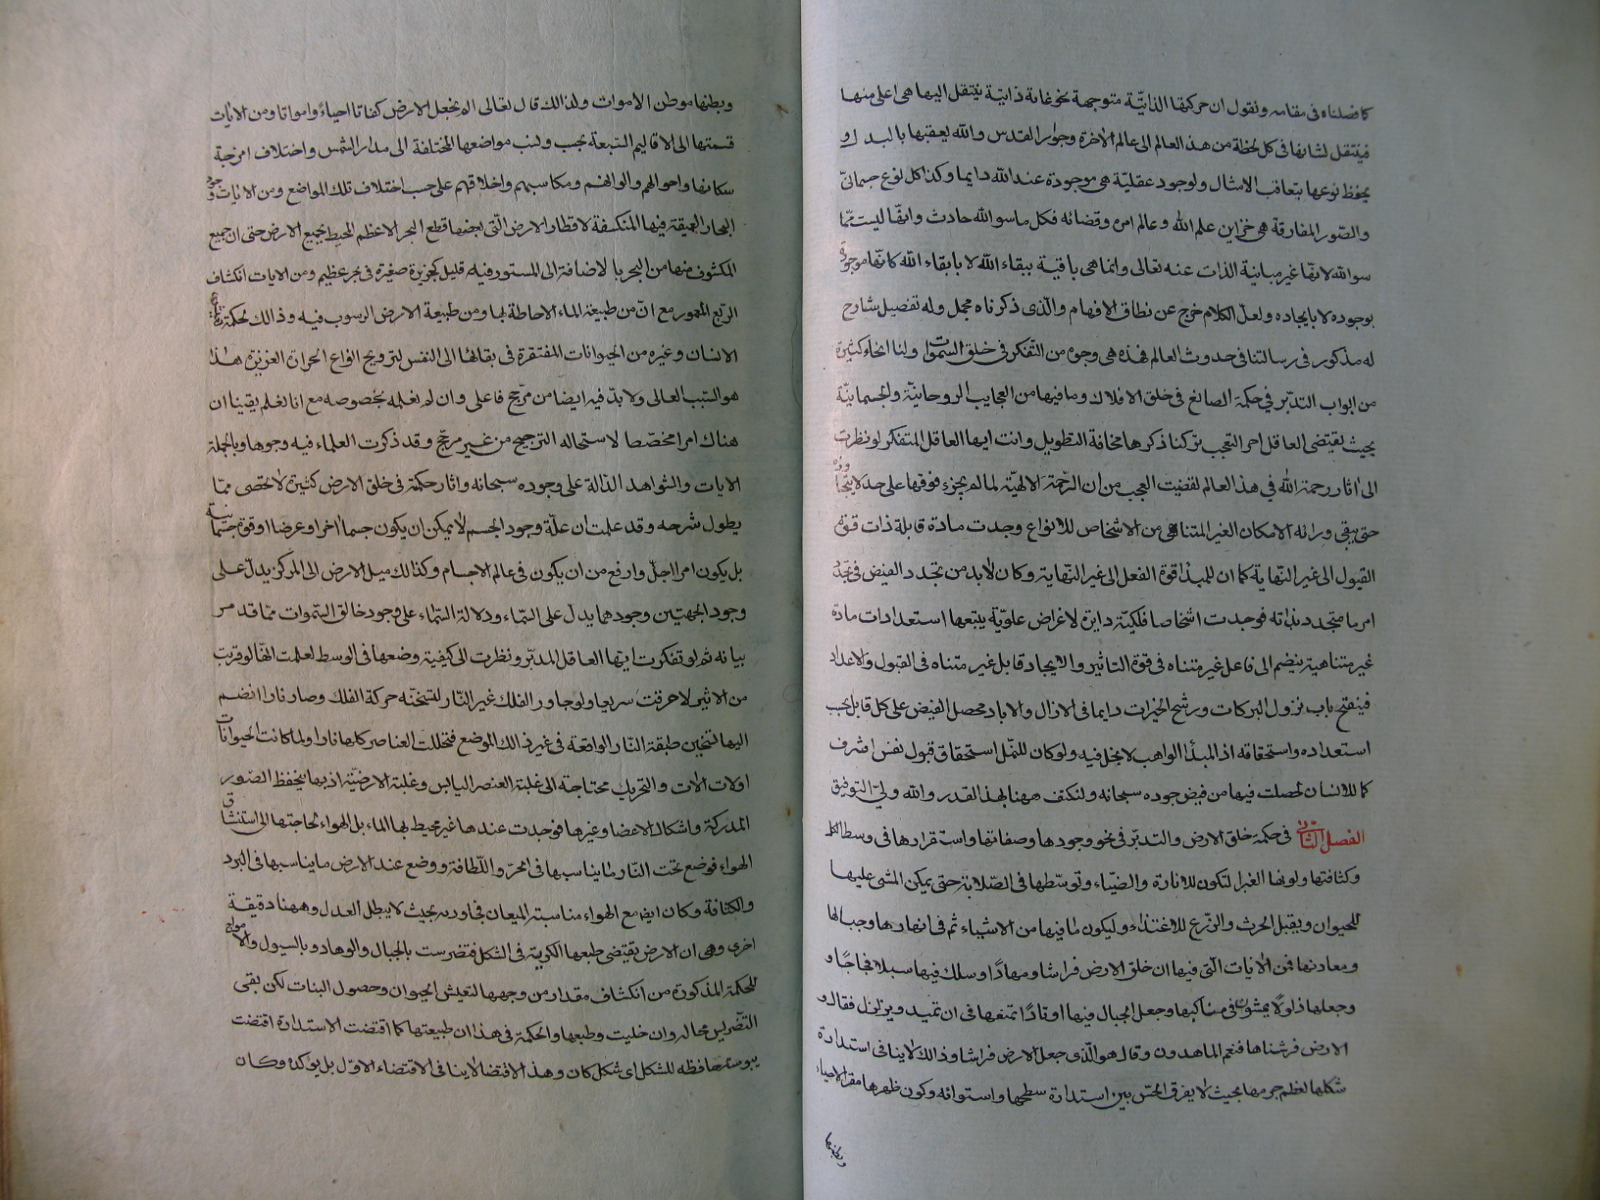 كما فصلناه فى مقامه ونقول ان حركتها الذاتيّة متوجهة نحو غاية ذاتيّة ينتقل اليها هى اعلى منها
فينتقل لشانها فى كل لحظة من هذا العالم الى عالم الاخرة وجوار القدس والله يعقبها بالبدل و
يحفظ نوعها بتعاقب الامثال ولوجود عقليّة هى موجودة عند الله دايما وكذا كل نوع جسمانىّ
والصّور المفارقة هى خزاين علم الله وعالم امره وقضائه فكل ما سوالله حادث وانها ليست ممّا
سوالله لانها غير مباينة الذات عنه تعالى وانما هى باقية ببقاء الله لا بابقاء الله كانّها موجودة
بوجوده لا بايجاده ولعلّ الكلام خرج عن نطاق الافهام والّذى ذكرناه مجمل وله تفصيل شارح
له مذكور فى رسالتنا فى حدوث العالم فهذه هى وجوه من التّفكر فى خلق السّموات ولنا انحاء كثيرة
من ابواب التدبّر فى حكمة الصانع فى خلق الافلاك وما فيها من العجايب الروحانيّة والجسمانيّة
بحيث يقتضى العاقل اخر التعجب تركنا ذكرها مخافة التطويل وانت ايها العاقل المتفكر لو نظرت
الى اثار رحمة الله فى هذا العالم لقضيت العجب من ان الرحمة الالهيّة لما لم يجز وقوفها على حد لا يتجاوزه
حتى يبقى ورائه الامكان الغير المتناهى من الاشخاص للانواع وجدت مادة قابلة ذات قوة
القبول الى غير النهاية كما ان للمبدأ قوة الفعل الى غير النّهاية وكان لابد من تجدد الفيض فى تجدد
امر ما متجدد بذاته فوجدت اشخاصا فلكيّة دايرة لاغراض علويّة يتبعها استعدادات مادة
غير متناهية ينضم الى فاعل غير متناه فى قوة التاثير والايجاد قابل غير متناه فى القبول والاعداد
فينفتح باب نزول البركات ورشح الخيرات دايما فى الازال والاباد فحصل الفيض على كل قابل بحسب
استعداده واستحقاقه اذ المبدأ الواهب لا بخل فيه ولو كان للنمل استحقاق قبول نفس اشرف
كما للانسان لحصلت فيها من فيض جوده سبحانه ولنكتف ههنا بهذا القدر والله ولى التوفيق
الفصل الثانى فى حكمة خلق الارض والتدبّر فى نحو وجودها وصفاتها واستقرارها فى وسط الكل
وكثافتها ولونها الغبرا لتكون للانارة والضيّاء وتوسّطها فى الصّلابة حتى يمكن المشى عليها
للحيوان ويقبل الحرث والزّرع للاغتذاء وليكون لما فيها من الاشياء ثم فى انهارها وجبالها
ومعادنها فمن الايات الّتى فيها ان خلق الارض فراشا ومهادًا وسلك فيها سبلا فجاجًا و
وجعلها ذلولًا يمشون فى مناكبها وجعل الجبال فيها اوتادًا تمنعها فى ان تميد ويزلزل فقال و
الارض فرشناها فنعم الماهدون وقال هو الّذى جعل الارض فراشا وذلك لا ينافى استدارة
شكلها لعظم جرمها بحيث لا يفرق الحسّ بين استدارة سطحها واستوائه وكون ظهرها مقر الاحياء
وبطنها
وبطنها موطن الاموات ولذلك قال تعالى الم نجعل الارض كفاتا احياءً وامواتا ومن الايات
قسمتها الى الاقاليم السّبعة بحسب ونسب مواضعها المختلفة الى مدار الشمس واختلاف امزجة
سكانها واحوالهم والوانهم ومكاسبهم واخلاقهم على حسب اختلاف تلك المواضع ومن الايات وجود
البحار العميقة فيها المنكسفة لاقطار الارض الّتى بعضها قطع البحر الاعظم المحيط بجميع الارض حتى ان جميع
المكشوف منها من البحر بالاضافة الى المستور فيه قليل كجزيرة صغيرة فى بحر عظيم ومن الايات انكشاف
الرّبع المعمور مع انّ من طبيعة الماء الاحاطة بها ومن طبيعة الارض الرسوب فيه وذلك لحكمة
الانسان وغيره من الحيوانات المفتقرة فى بقائها الى النفس لترويح انواع الحرارة الغريزة هذا
هو السّبب العالى ولا بدّ فيه ايضا من مرجح فاعلى وان لم نعلمه بخصوصه مع انا نعلم يقينا ان
هناك امرا مخصّصا لاستحاله الترجيح من غير مرجّح وقد ذكرت العلماء فيه وجوها وبالجملة
الايات والشواهد الدّالة على وجوده سبحانه واثار حكمة فى خلق الارض كثيرة لا تحصى ممّا
يطول شرحه وقد علمت ان علّة وجود الجسم لا يمكن ان يكون جسما اخر او عرضا او قوة جسمانيّة
بل يكون امرا اجلّ وارفع من ان يكون فى عالم الاجسام وكذلك ميل الارض الى المركز يدلّ على
وجود الجهتين وجودهما يدل على السّماء ودلالة السّماء على وجود خالق السّموات ممّا قد مر
بيانه ثم لو تفكرت ايتها العاقل المدبّر ونظرت الى كيفية وضعها فى الوسط لعلمت انّها لو قربت
من الاثير لاحرقت سريعا ولو جاور الفلك غير النّار لسّخنته حركة الفلك وصار نارا انضم
اليها لتسخين طبقة النّار الواقعة فى غير ذلك الموضع فتخللت العناصر كلها نارا ولما كانت الحيوانات
اولات الآت والتحريك محتاجة الى غلبة العنصر اليابس وغلبة الارضيّة اذ بها يحفظ الصّور
المدركة واشكال الاعضا وغيرها فوجدت عندها غير محيط بها الماء بل الهواء لحاجتها الى استنشاق
الهواء فوضع تحت النّار ما يناسبها فى الحرّ واللّطافة ووضع عند الارض ما يناسبها فى البرد
والكثافة وكان ايضا مع الهواء مناسبة الميعان فجاورته بحيث لا يبطل العدل وههنا دقيقة
اخرى وهى ان الارض يقتضى طبعها الكوية فى الشكل فتضرست بالجبال والوهاد وبالسيول والامواج
للحكمة المذكورة من انكشاف مقدار من وجهها لتعيش الحيوان وحصول النبات لكن بقى
التضريس محاله وان خليت وطبعها والحكمة فى هذا ان طبيعتها كما اقتضت الاستدارة اقتضت
يبوستها حافظه للشكل اى شكل كان وهذا الاقتضا لا ينافى الاقتضاء الاوّل بل يؤكده وكان